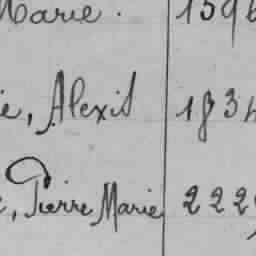 Marie. 159
e, Alexis 183
, Pierre Marie 222